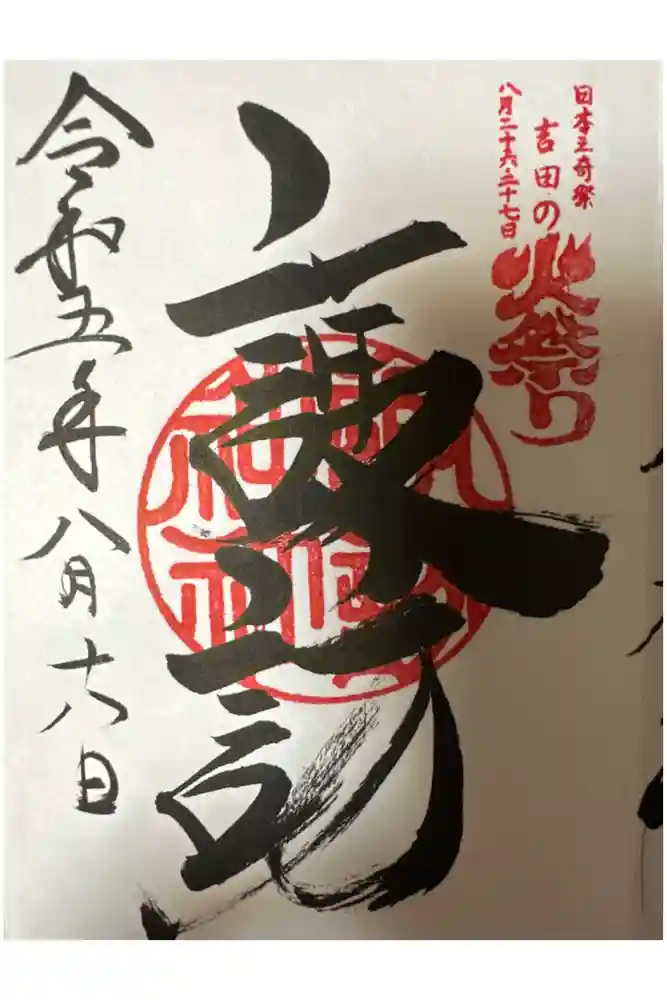 日本三奇祭
吉田の
火祭り
八月二十六・二十七日
諏訪
令和五年八月十八日